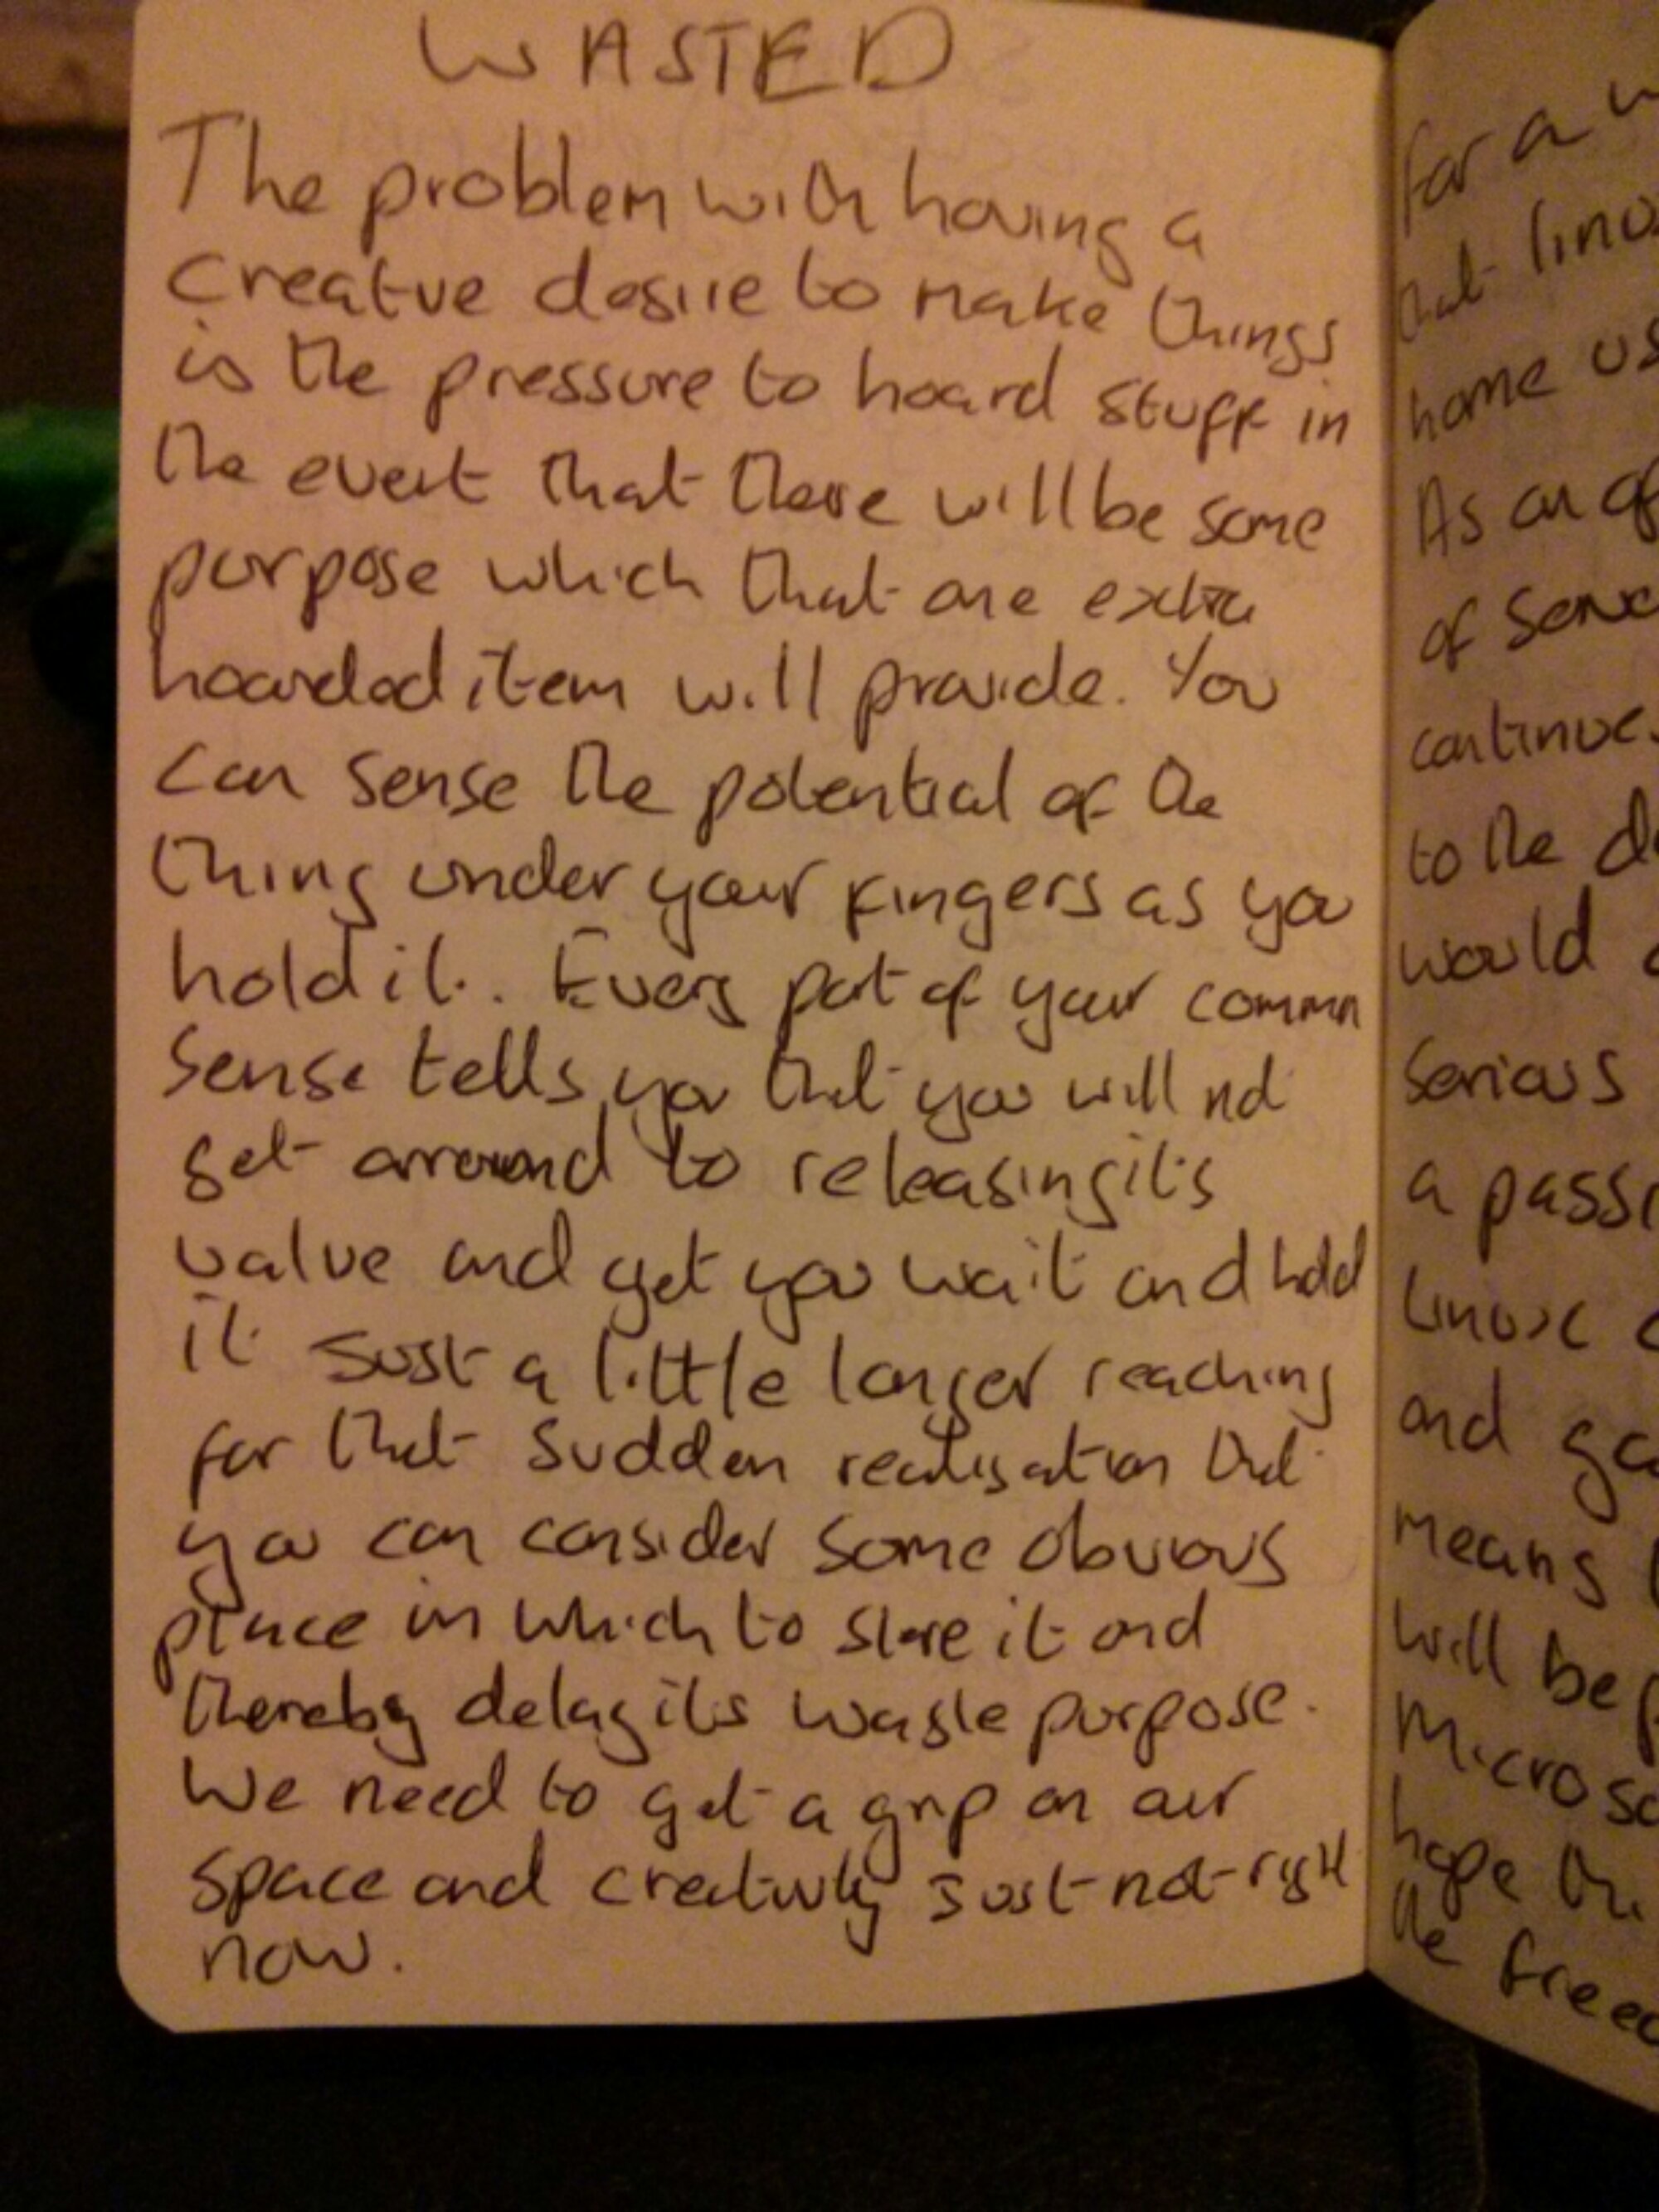 WASTED
The problem with having a
creative desire to make things
is the pressure to hoard stuff in
the event that there will be some
purpose which that one extra
hoarded item will provide. You
can sense the potential of the
thing under your fingers as you
hold it. Every part of your common
sense tells you that you will not
get arround to releasing it's
value and yet you wait and hold
it just a little longer reaching
for that sudden realisation that
you can consider some obvious
place in which to store it and
thereby delay its waste purpose.
We need to get a grip on our
space and creativity just-not-right
now.
for a
that
home us
As an of
of
continue
to the
would
serious
a passi
linux
and ga
means
will be
Microso
hope
the free